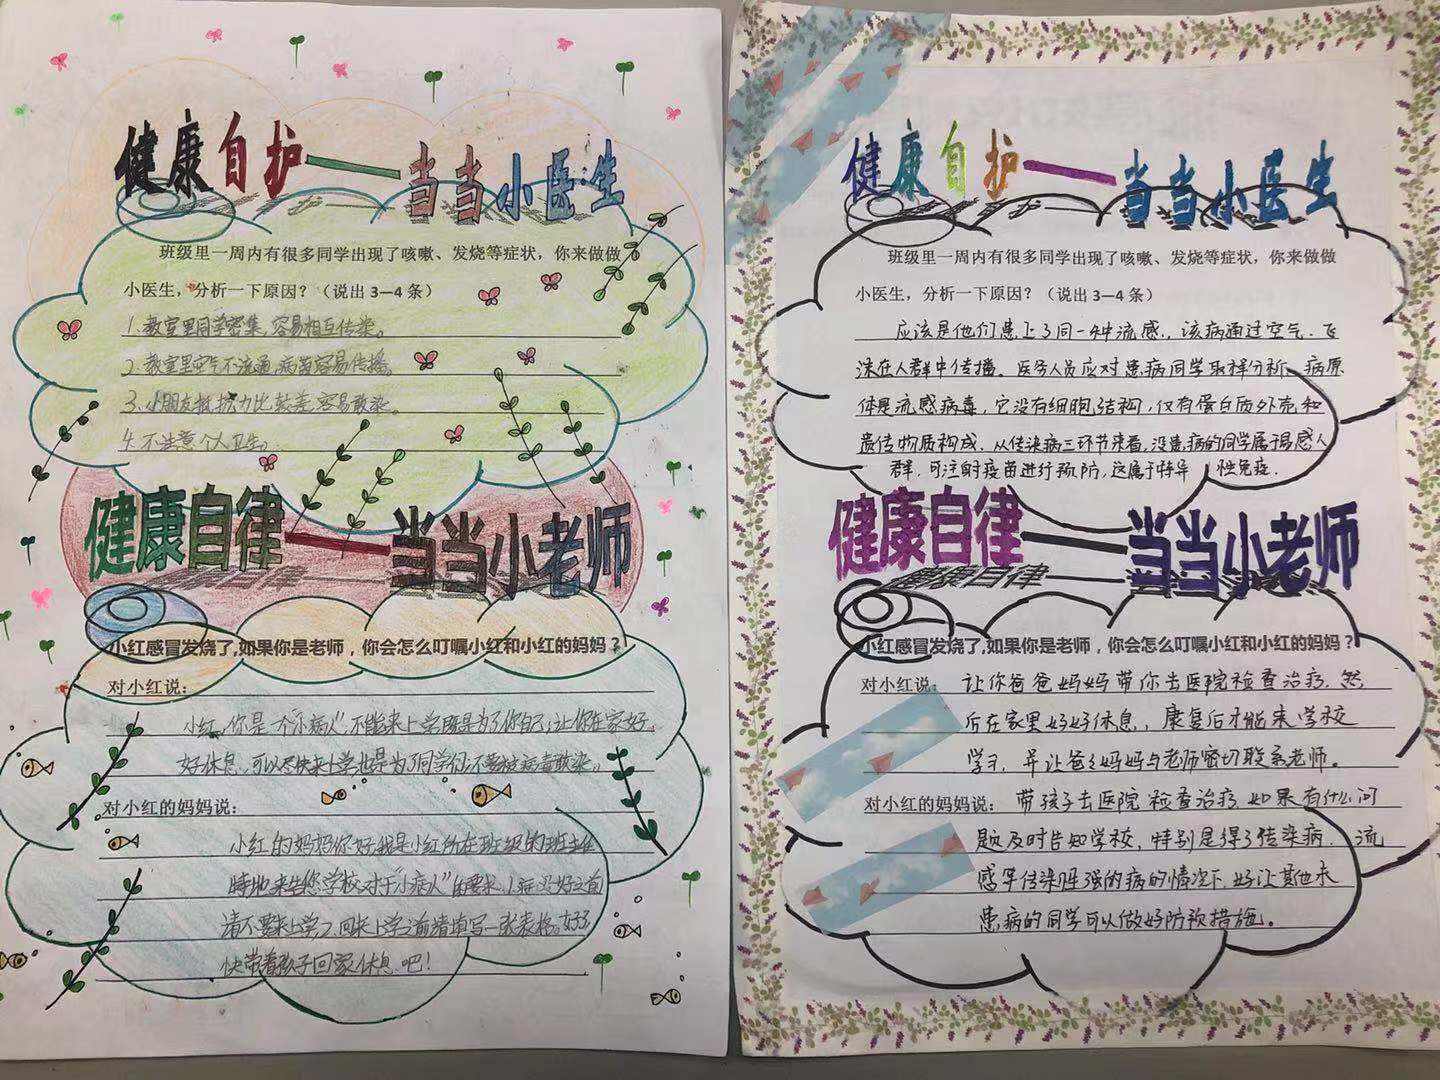 健康自护——当当小医生
班级里一周内有很多同学出现了咳嗽、发烧等症状，你来做做
小医生，分析一下原因？（说出 3—4 条）
1.教室里同学密集，容易相互传染。
2.教室里空气不流通，病菌容易传播。
3.小朋友抵抗力比较差，容易散染。
4.不注意个人卫生。
健康自律——当当小老师
小红感冒发烧了,如果你是老师，你会怎么叮嘱小红和小红的妈妈？
对小红说：
小红，你是一个“小病人”，不能来上学既是为了你自己，让你在家好
好休息，可以尽快来上学，也是为了同学们，不要被病毒散染。
对小红的妈妈说：
小红的妈妈你好，我是小红所在班级的班主任
特地来告你学校对于“小病人”的要求，1.症没好之前
请不要来上学，2.回来上学前请填写一张表格。好了
快带着孩子回家休息吧！
健康自护——当当小医生
班级里一周内有很多同学出现了咳嗽、发烧等症状，你来做做
小医生，分析一下原因？（说出 3—4 条）
应该是他们患上了同一种流感，该病通过空气、飞
沫在人群中传播。医务人员应对患病同学取样分析、病原
体是流感病毒，它没有细胞结构，仅有蛋白质外壳和
遗传物质构成，从传染病三环节来看，没患病的同学属于易感人
群，可注射疫苗进行预防，这属于特异性免疫.
健康自律——当当小老师
小红感冒发烧了,如果你是老师，你会怎么叮嘱小红和小红的妈妈？
对小红说： 让你爸爸妈妈带你去医院检查治疗，然
后在家里好好休息，康复后才能来学校
学习，并让爸爸妈妈与老师密切联系老师。
对小红的妈妈说： 带孩子去医院检查治疗，如果有什么问
题及时告知学校，特别是得了传染病，流
感等传染性强的病的情况下，好让其他未
患病的同学可以做好防预措施。